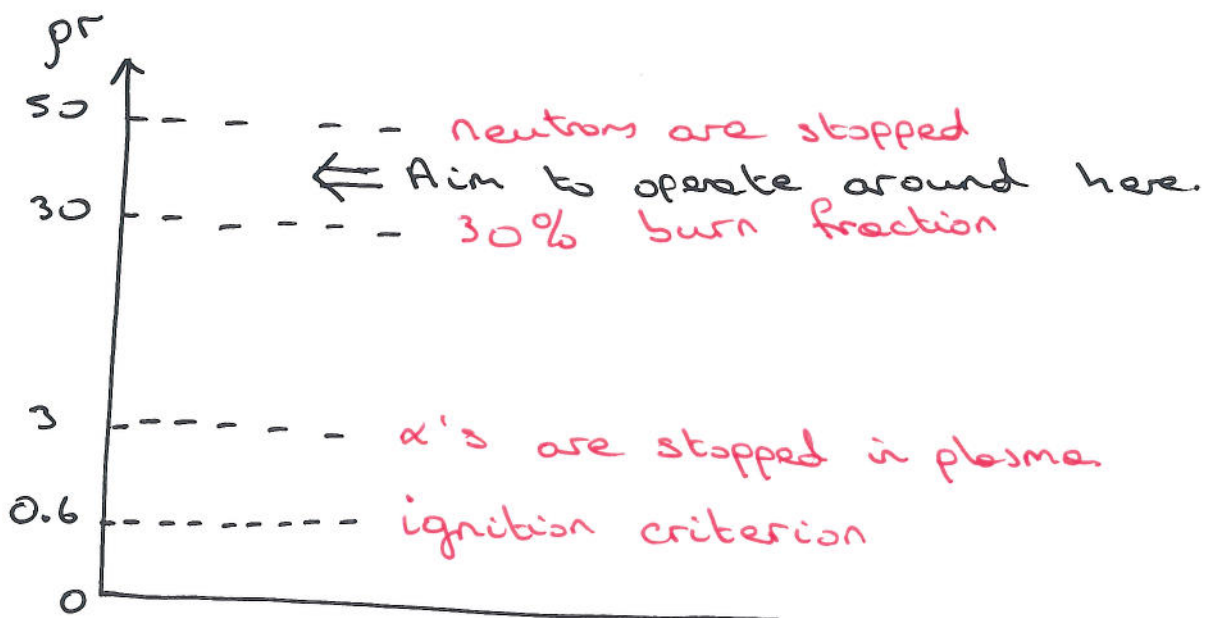 ρr
50 neutrons are stopped
⇐ Aim to operate around here.
30 30% burn fraction
3 α's are stopped in plasma
0.6 ignition criterion
0